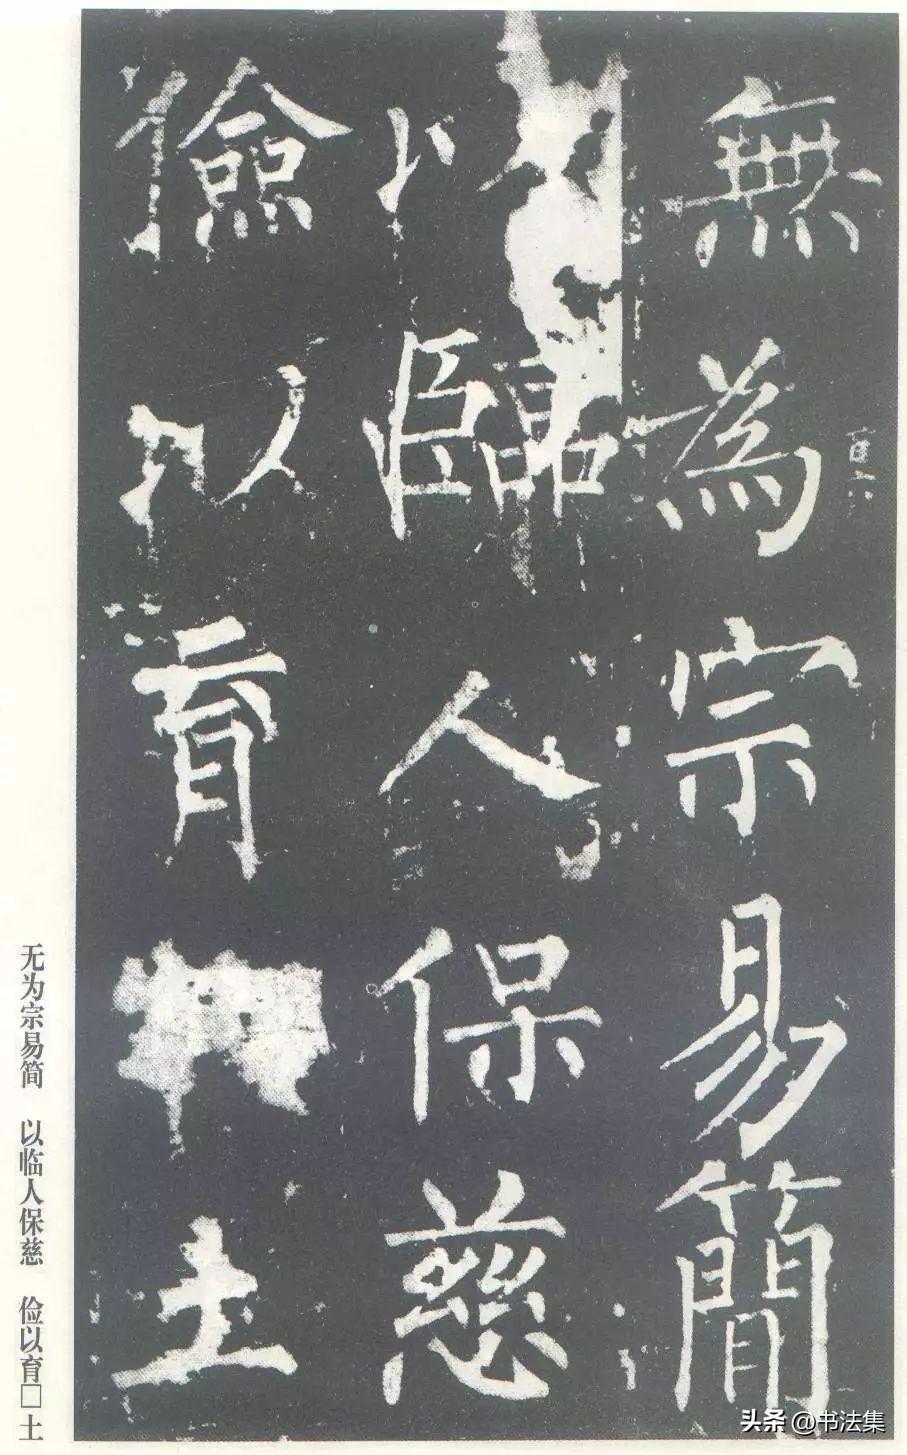 無為宗易簡
以臨人保慈
儉以育
土
百六
无为宗易简 以临人保慈 俭以育□土
头条 @书法集